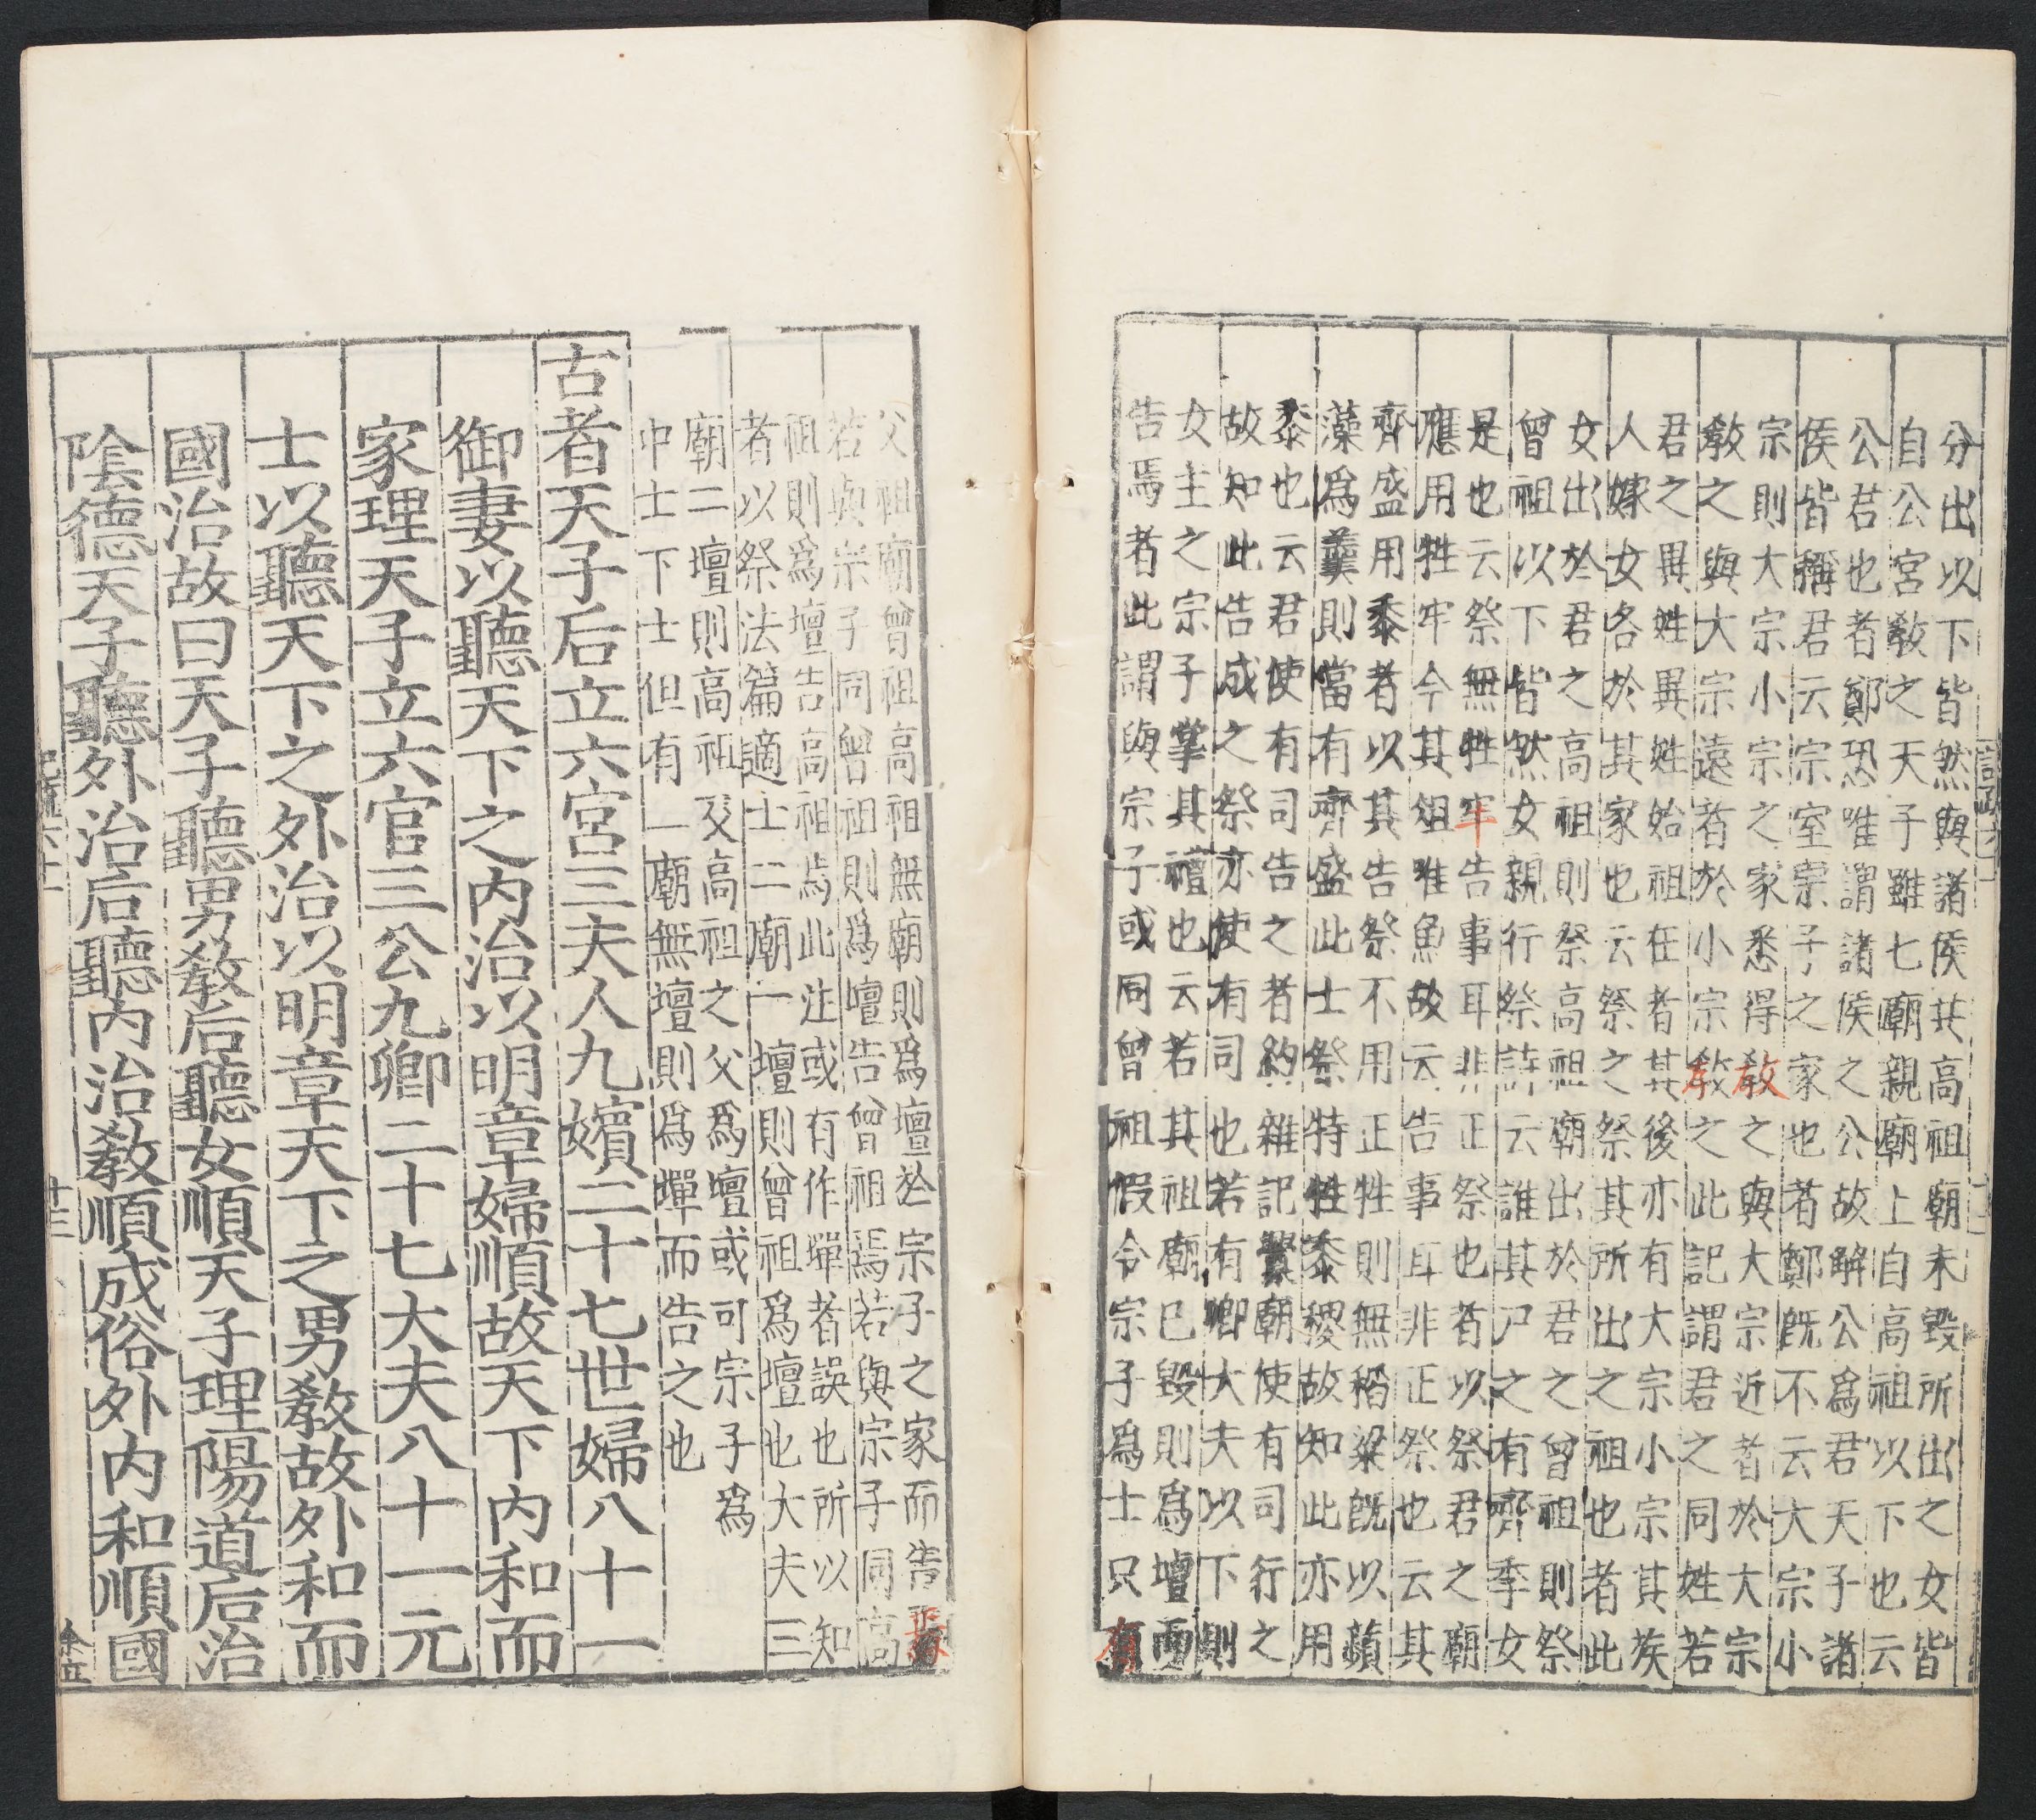 分出以下皆然與諸侯共高祖廟未毀所出之女皆
自公宮敎之天子雖七廟親廟上自高祖以下也云
公君也者鄭恐唯謂諸侯之公故解公爲君天子諸
侯皆稱君云宗室宗子之家也者鄭旣不云大宗小
宗則大宗小宗之家悉得敎之與大宗近者於大宗
敎之與大宗遠者於小宗敎之此記謂君之同姓若
君之異姓異姓始祖在者其後亦有大宗小宗其族
人嫁女各於其家也云祭之祭其所出之祖也者此
女出於君之高祖則祭高祖廟出於君之曾祖則祭
曾祖以下皆然女親行祭詩云誰其尸之有齊季女
是也云祭無牲牢告事耳非正祭也者以祭君之廟
應用牲牢今其俎唯魚故云告事耳非正祭也云其
齊盛用黍者以其告祭不用正牲則無稻粱旣以蘋
藻爲羹則當有齊盛此士祭特牲黍稷故知此亦用
黍也云君使有司告之者約雜記釁廟使有司行之
故知此告成之祭亦使有司也若有卿大夫以下則
女主之宗子掌其禮也云若其祖廟已毀則爲壇而
告焉者此謂與宗子或同曾祖假令宗子爲士只有
父祖廟曾祖高祖無廟則爲壇於宗子之家而告焉
若與宗子同曾祖則爲壇告曾祖焉若與宗子同高
祖則爲壇告高祖焉此注或有作墠者誤也所以知
者以祭法篇適士二廟一壇則曾祖爲壇也大夫三
廟二壇則高祖及高祖之父爲壇或可宗子爲
中士下士但有一廟無壇則爲墠而告之也
古者天子后立六宮三夫人九嬪二十七世婦八十一
御妻以聽天下之內治以明章婦順故天下內和而
家理天子立六官三公九卿二十七大夫八十一元
士以聽天下之外治以明章天下之男敎故外和而
國治故曰天子聽男敎后聽女順天子理陽道后治
陰德天子聽外治后聽內治敎順成俗外內和順國
十三